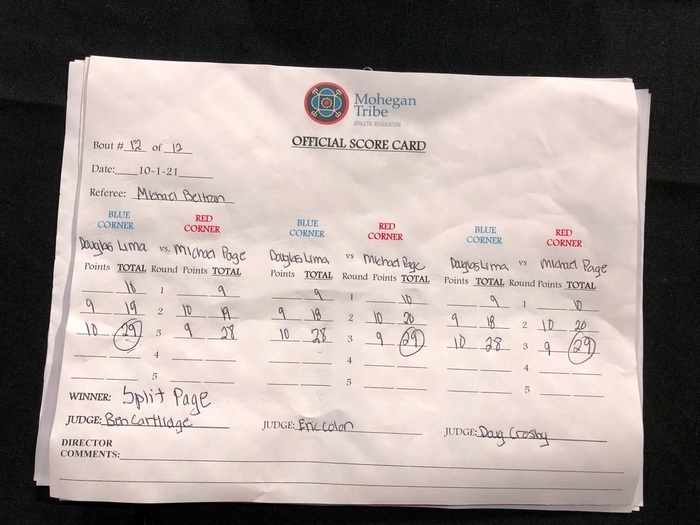 Mohegan
Tribe
ATHLETIC REGULATION
OFFICIAL SCORE CARD
Bout # 12 of 12
Date: 10-1-21
Referee: Michael Beltran
BLUE CORNER RED CORNER BLUE CORNER RED CORNER BLUE CORNER RED CORNER
Douglas Lima vs. Michael Page Douglas Lima vs Michael Page Douglas Lima vs Michael Page
Points TOTAL Round Points TOTAL Points TOTAL Round Points TOTAL Points TOTAL Round Points TOTAL
10 1 9 9 1 10 9 1 10
9 19 2 10 19 9 18 2 10 20 9 18 2 10 20
10 29 3 9 28 10 28 3 9 29 10 28 3 9 29
4 4 4
5 5 5
WINNER: Split Page
JUDGE: Ben Cartlidge JUDGE: Eric Colon JUDGE: Doug Crosby
DIRECTOR
COMMENTS: